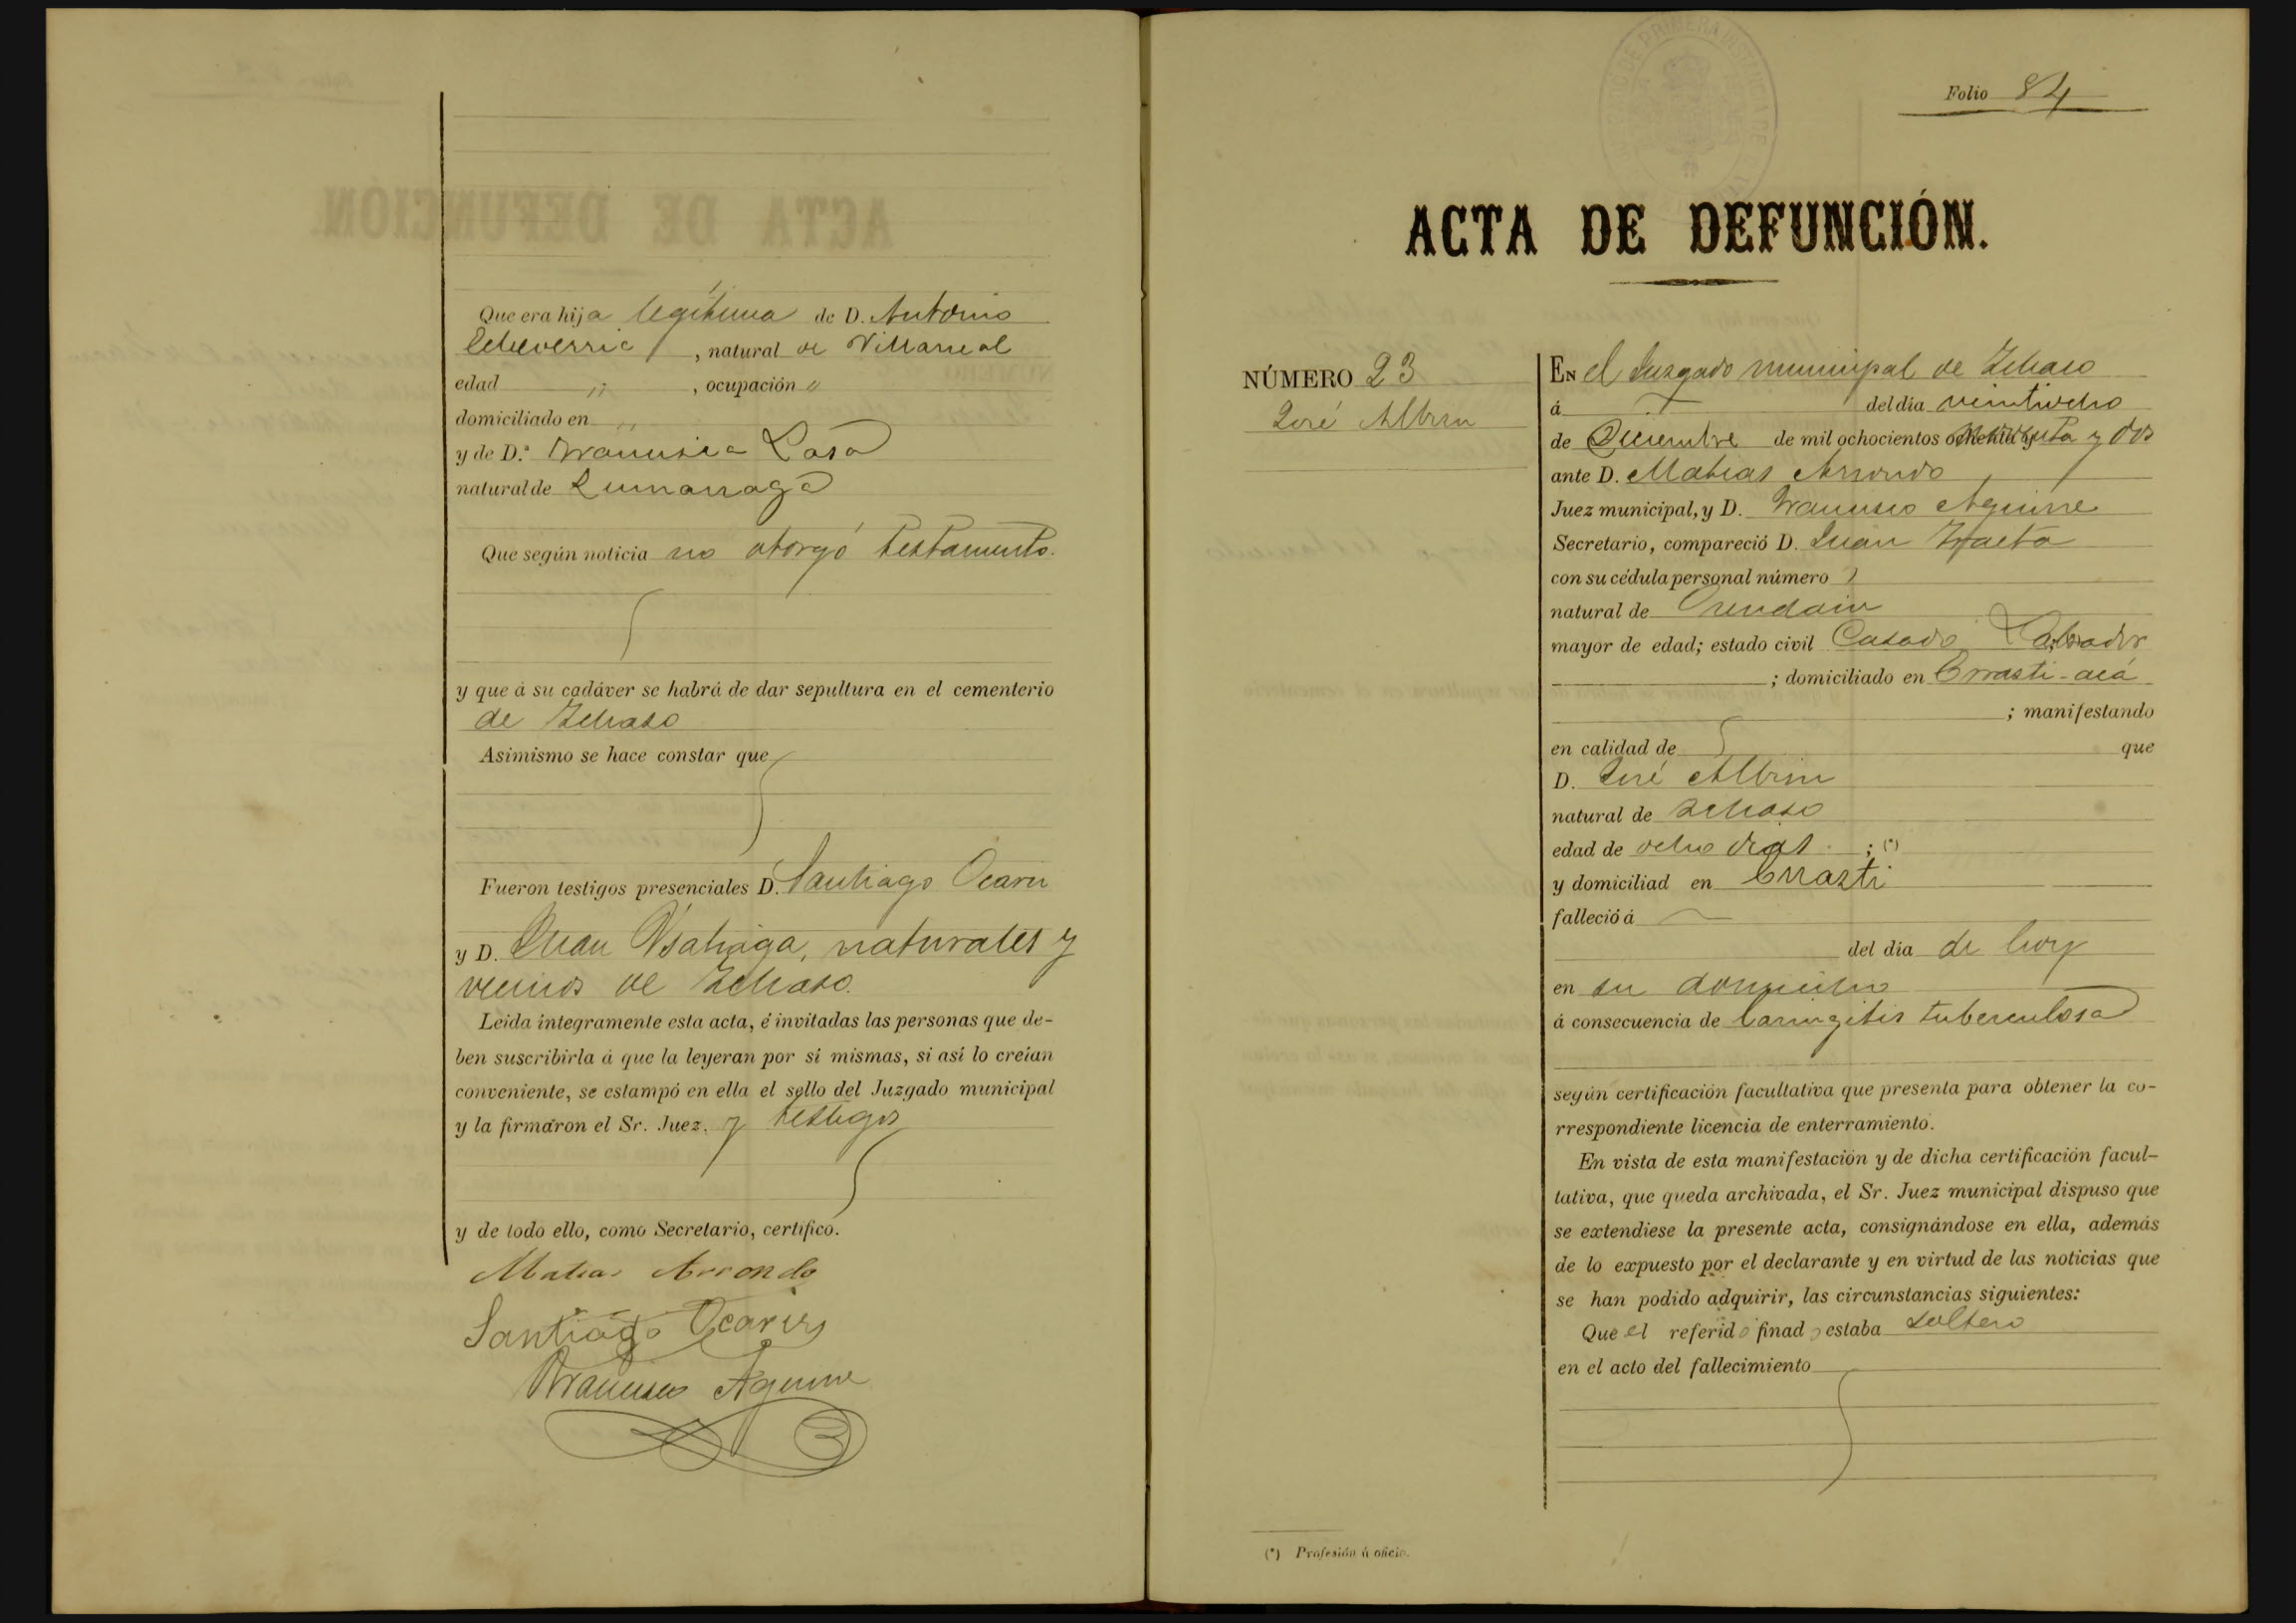 Que era hija legítima de D. Antonio
Echeverria, natural de Villarreal
edad „ , ocupación „
domiciliado en „
y de D.ª Francisca Lasa
natural de Zumarraga
Que según noticia no otorgó testamento.
y que á su cadáver se habrá de dar sepultura en el cementerio
de Ichaso
Asimismo se hace constar que
Fueron testigos presenciales D. Santiago Ocariz
y D. Juan Usabiaga, naturales y
vecinos de Ichaso.
Leida íntegramente esta acta, é invitadas las personas que de-
ben suscribirla á que la leyeran por sí mismas, si así lo creían
conveniente, se estampó en ella el sello del Juzgado municipal
y la firmáron el Sr. Juez. y testigos
y de todo ello, como Secretario, certifico.
Matias Arrondo
Santiago Ocariz
Francisco Aguirre
Folio 84
ACTA DE DEFUNCIÓN.
NÚMERO 23
José Albisu
EN el Juzgado municipal de Ichaso
á del dia veintiocho
de Diciembre de mil ochocientos noventa y dos
ante D. Matias Arrondo
Juez municipal, y D. Francisco Aguirre
Secretario, compareció D. Juan
con su cédula personal número
natural de Orendain
mayor de edad; estado civil Casado Labrador
; domiciliado en Errasti-
; manifestando
en calidad de que
D. José Albisu
natural de Ichaso
edad de ocho dias ; (*)
y domiciliad en Errazti
falleció á
del dia de hoy
en su domicilio
á consecuencia de laringitis tuberculosa
según certificación facultativa que presenta para obtener la co-
rrespondiente licencia de enterramiento.
En vista de esta manifestación y de dicha certificación facul-
tativa, que queda archivada, el Sr. Juez municipal dispuso que
se extendiese la presente acta, consignándose en ella, además
de lo expuesto por el declarante y en virtud de las noticias que
se han podido adquirir, las circunstancias siguientes:
Que el referido finado estaba soltero
en el acto del fallecimiento
(*) Profesión ú oficio.